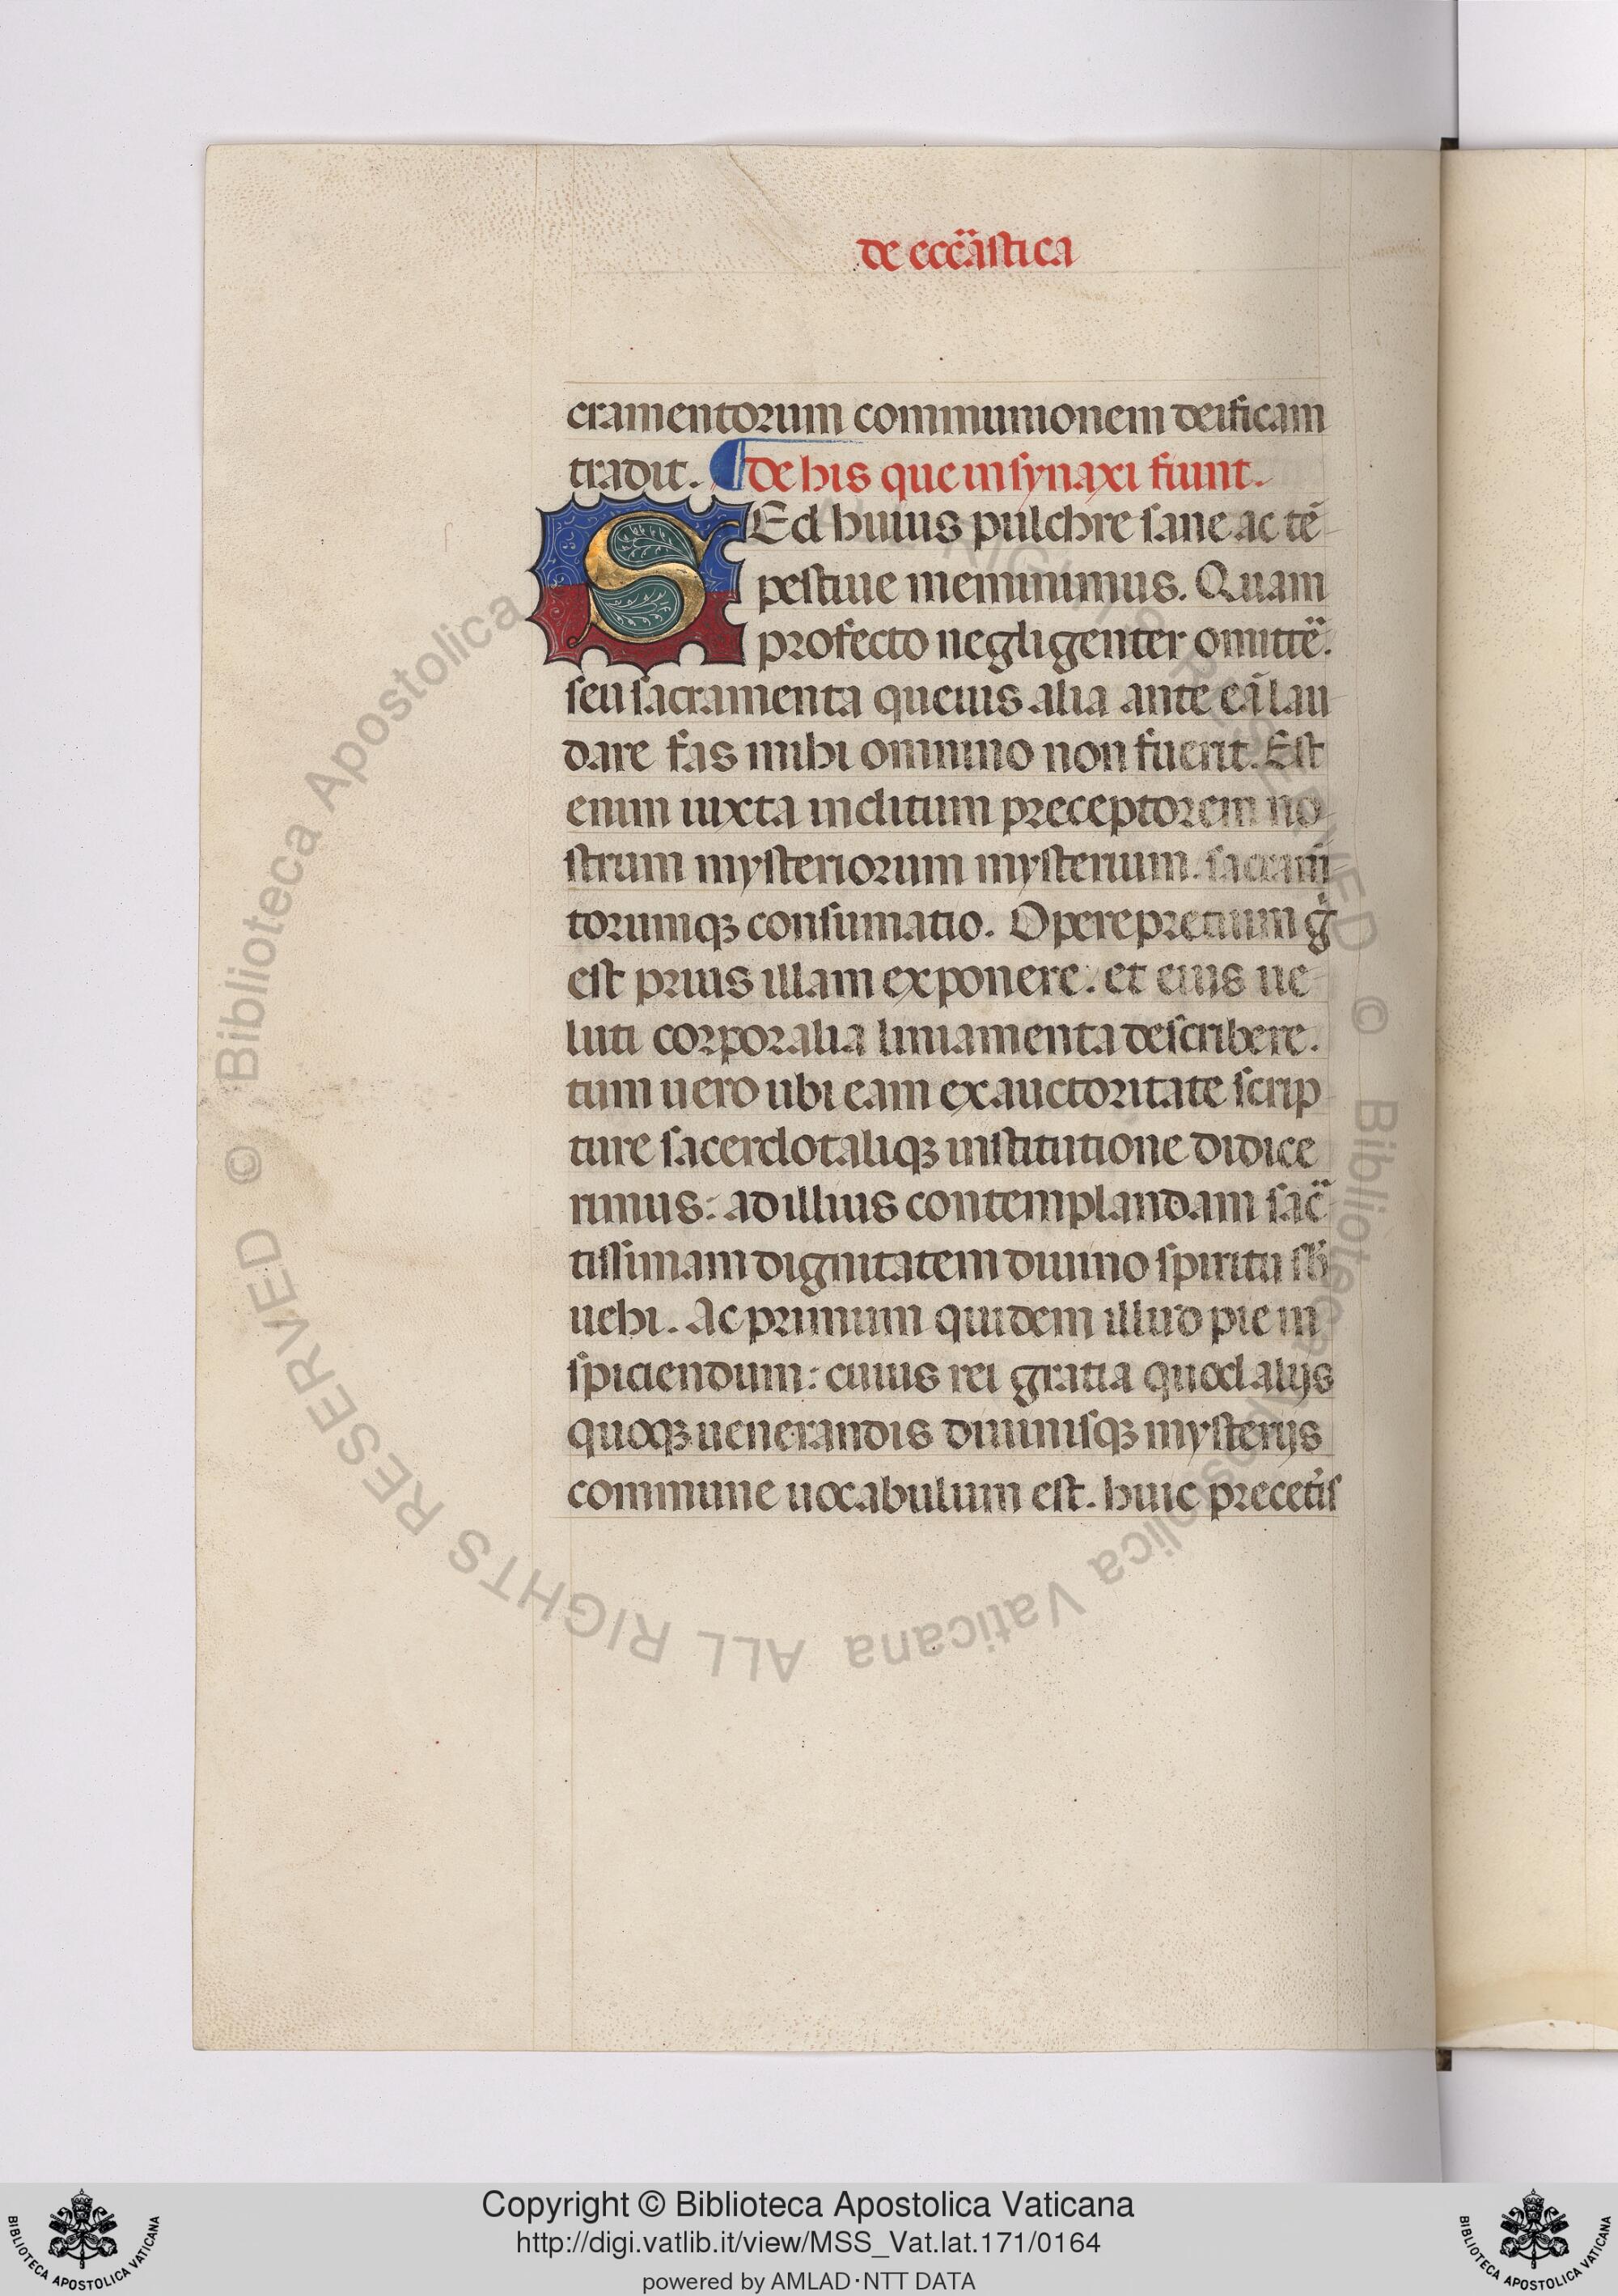 de eccāstica
cramentorum communionem deificam
tradit. ¶ de his que in synaxi fiunt.
SEd huius pulchre sane ac tē
pestiue meminimus. Quam
profecto negligenter omittē.
seu sacramenta queuis alia ante eā lau
dare fas mihi omnino non fuerit. Est
enim iuxta inclitum preceptorem no
strum mysteriorum mysterium. sacramē
torumqꝫ consumatio. Opereprecium gͥ
est prius illam exponere: et eius ue
luti corporalia liniamenta describere.
tum uero ubi eam ex auctoritate scrip
ture sacerdotaliqꝫ institutione didice
rimus: ad illius contemplandam sac̄
tissimam dignitatem diuino spiritu sb̄
uehi. Ac primum quidem illud pie in
spiciendum: cuius rei gratia quod alijs
quoqꝫ uenerandis diuinisqꝫ mysterijs
commune uocabulum est. huic precet͛is
© Biblioteca Apostolica Vaticana ALL RIGHTS RESERVED
© Biblioteca Apostolica Vaticana ALL RIGHTS RESERVED
Copyright © Biblioteca Apostolica Vaticana
http://digi.vatlib.it/view/MSS_Vat.lat.171/0164
powered by AMLAD·NTT DATA
BIBLIOTECA APOSTOLICA VATICANA
BIBLIOTECA APOSTOLICA VATICANA